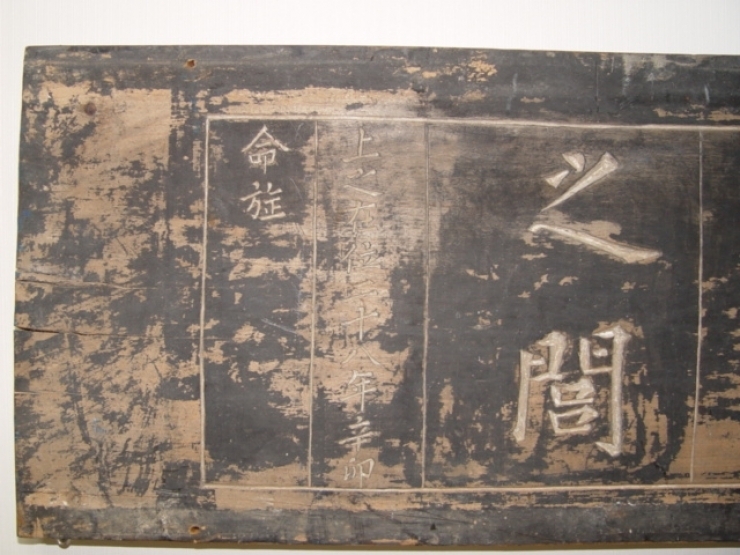 之閭
上之在位二十八年辛卯
命旌